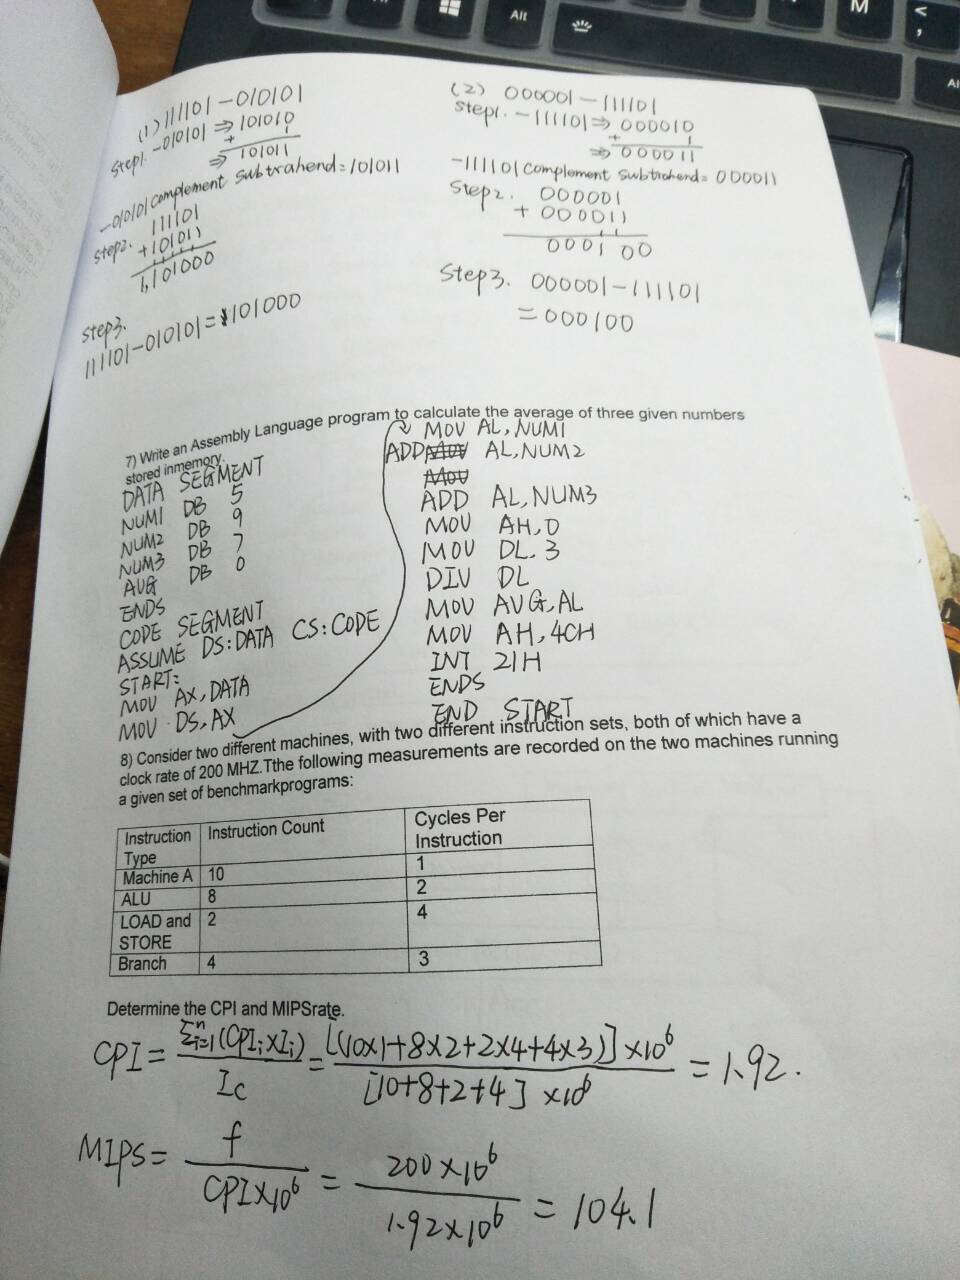 (1) 111101-010101
Step1. -010101 ⇒ 101010
+ 1
⇒ 101011
-010101 complement subtrahend = 101011
Step2. 111101
+101011
1,101000
Step3.
111101-010101=1101000
(2) 000001-111101
Step1. -111101 ⇒ 000010
+ 1
⇒ 000011
-111101 complement subtrahend = 000011
Step2. 000001
+ 000011
000100
Step3. 000001-111101
= 000100
7) Write an Assembly Language program to calculate the average of three given numbers
stored inmemory.
DATA SEGMENT
NUM1 DB 5
NUM2 DB 9
NUM3 DB 7
AVG DB 0
ENDS
CODE SEGMENT
ASSUME DS:DATA CS:CODE
START:
MOV AX,DATA
MOV DS,AX
MOV AL,NUM1
ADD MOV AL,NUM2
MOV
ADD AL,NUM3
MOV AH,0
MOV DL.3
DIV DL
MOV AVG,AL
MOV AH,4CH
INT 21H
ENDS
END START
8) Consider two different machines, with two different instruction sets, both of which have a
clock rate of 200 MHZ.Tthe following measurements are recorded on the two machines running
a given set of benchmarkprograms:
Instruction Type Instruction Count Cycles Per Instruction
Machine A 10 1
ALU 8 2
LOAD and STORE 2 4
Branch 4 3
Determine the CPI and MIPSrate.
CPI = Σⁿᵢ₌₁(CPIᵢ×Iᵢ) / Ic = [(10×1+8×2+2×4+4×3)]×10⁶ / [10+8+2+4]×10⁶ = 1.92.
MIPS = f / CPI×10⁶ = 200×10⁶ / 1.92×10⁶ = 104.1